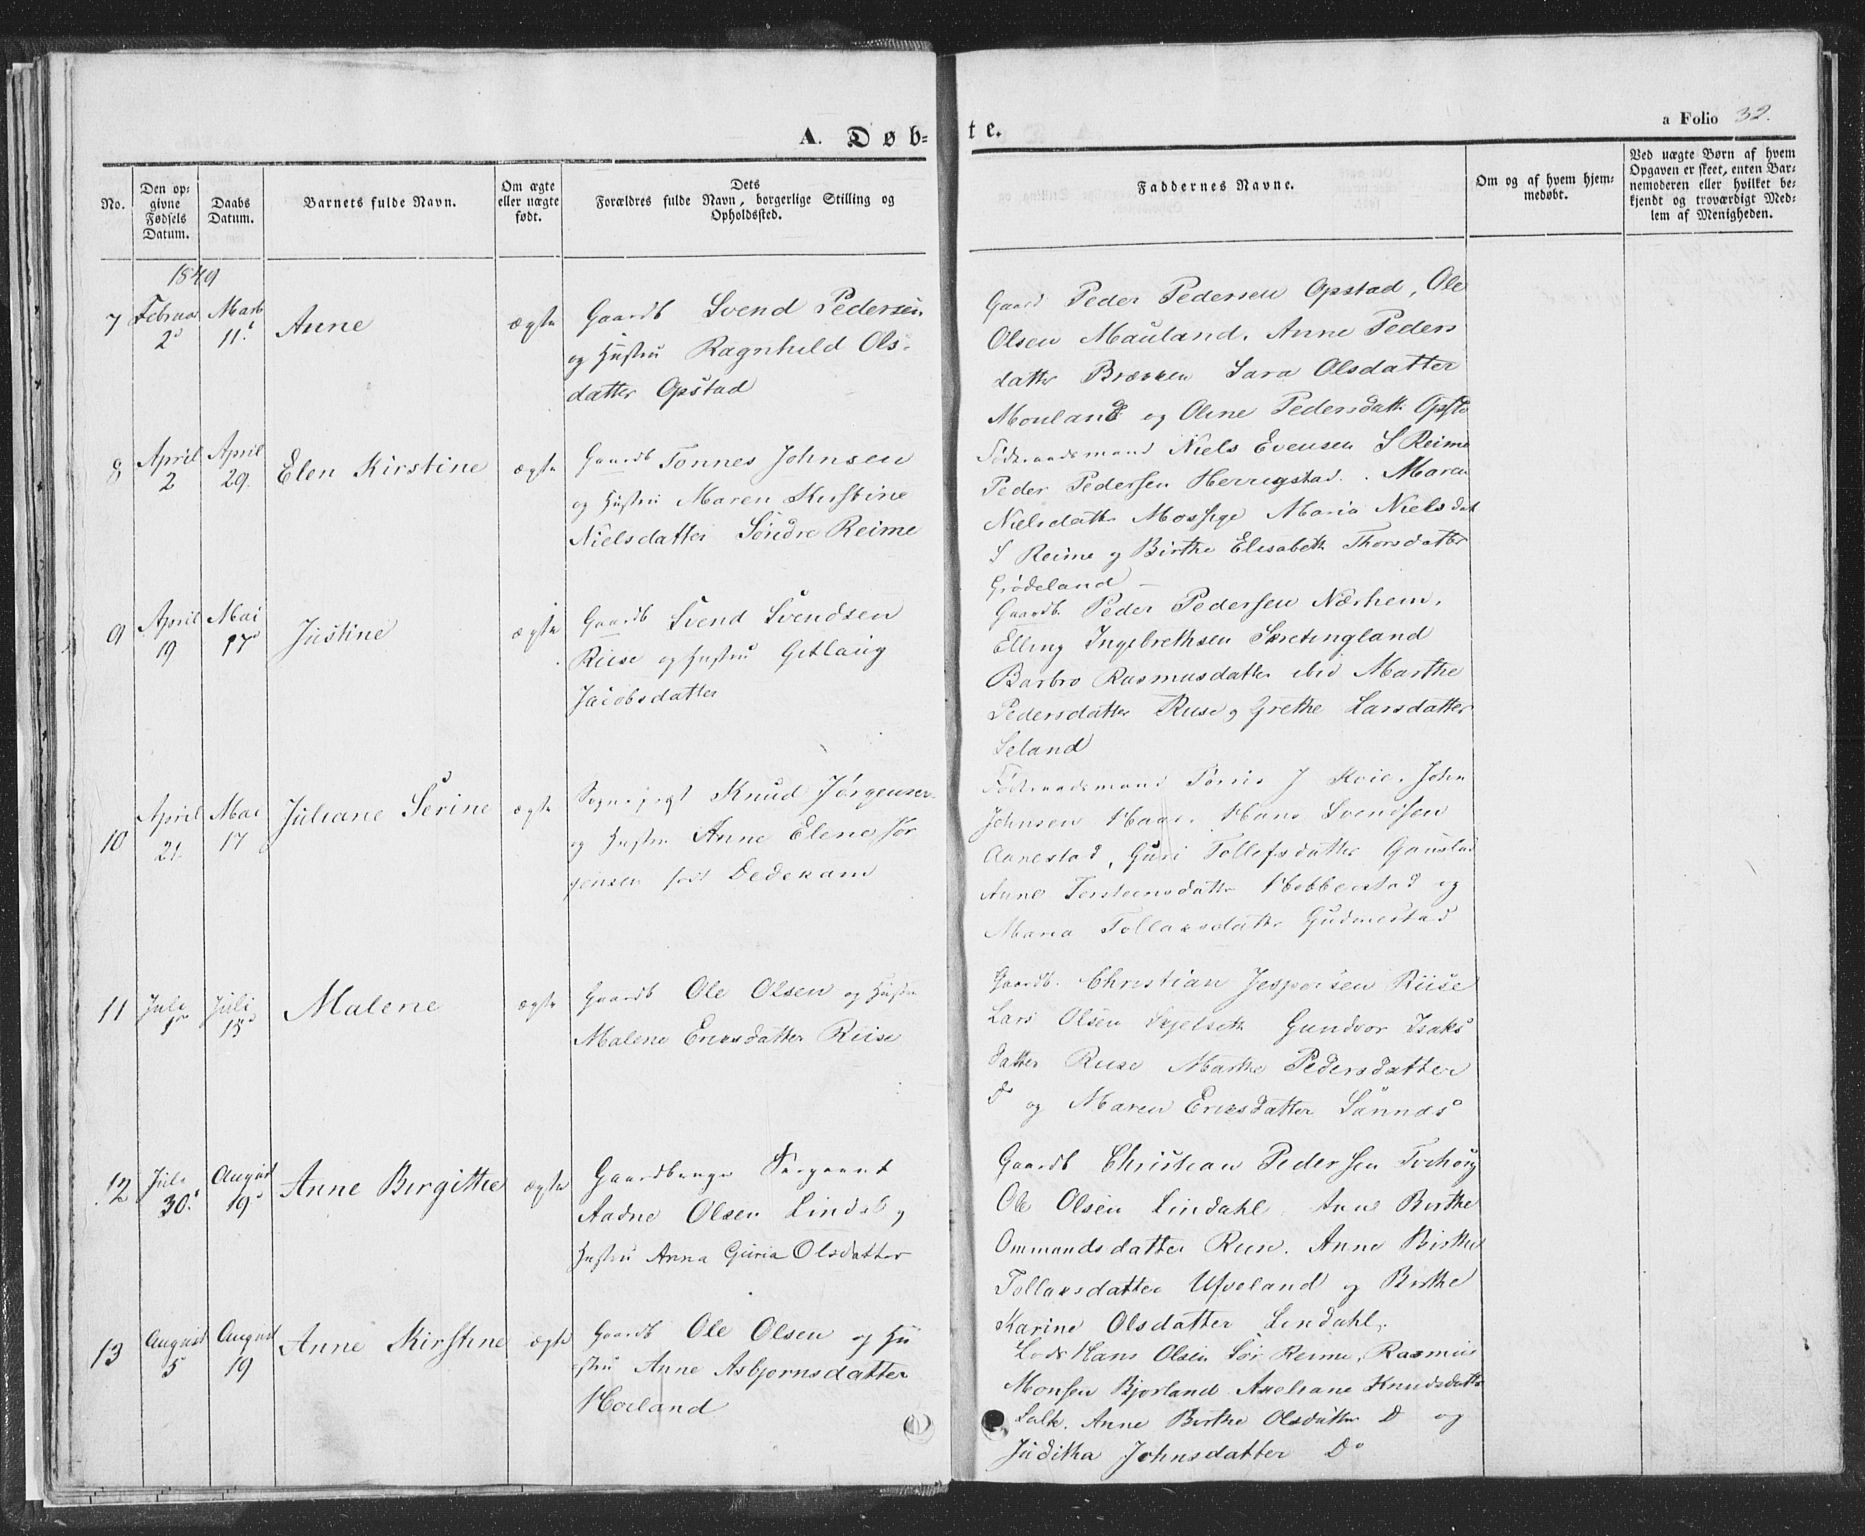 A. Døb=
te.
a Folio 32.
No.
Den op-
givne
Fødsels
Datum.
Daabs
Datum.
Barnets fulde Navn.
Om ægte
eller uægte
født.
Dets
Forældres fulde Navn, borgerlige Stilling og
Opholdssted.
Faddernes Navne.
Om og af hvem hjem-
medøbt.
Ved uægte Børn af hvem
Opgaven er skeet, enten Bar-
nemoderen eller hvilket be-
kjendt og troværdigt Med-
lem af Menigheden.
1849
7 Februar 2d Marts 11t Anne ægte
Gaardb Svend Pedersen
og Hustru Ragnhild Ols-
datter Opstad
Gaard Peder Pedersen Opstad, Ole
Olsen Mauland. Anne Peders
datter Brækken Sara Olsdatter
Mouland og Oline Pedersdatt Opstd
8 April 2 April 29. Elen Kirstine ægte
Gaardb Tonnes Johnsen
og Hustru Maren Kirstine
Nielsdatter Söndre Reime
Föderaadsmand Niels Evensen S Reime
Peder Pedersen Herrigstad. Maren
Nielsdattr Mossige Maria Nielsdat
S Reime og Birthe Elisabeth Thorsdatter
Grødeland
9 April 19 Mai 17d Justine ægte
Gaardb Svend Svendsen
Riise og Hustru Getlaug
Jacobsdatter
Gaardb. Peder Pedersen Nærhem,
Elling Ingebrethsen Sæetingland
Barbro Rasmusdatter ibid Marthe
Pedersdatter Riise og Grethe Larsdatter
Seland
10 April 21 Mai 17 Juliane Serine ægte
Knud Jörgensen
og Hustru Anne Elene Jör
gensen föd Dedekam
Föderaadsmand Törris J Kvie. John
Johnsen Haar. Hans Svendsen
Aanestad, Guri Tollefsdatter Gauslad
Anne Torsteensdattr Hobberstad og
Maria Tollaksdatter Gudmestad
11 Juli 1ste Juli 15d Malene ægte
Gaardb Ole Olsen og Hustru
Malene Ericksdatter Riise
Gaardb. Christian Jespersen Riise
Lars Olsen Skjelseth Gundvor Isaks
datter Riise Marthe Pedersdatter
Do og Maren Ericksdatter Sannæs
12 Juli 30t August 19d Anne Birgitte ægte
Gaardbruger Sergeant
Aadne Olsen Lindal og
Hustru Anna Guria Olsdatter
Gaardb Christian Pedersen Tvihoug
Ole Olsen Lindahl, Anne Birthe
Ommundsdatter Riise. Anne Birthe
Tollaksdatter Ufveland og Birthe
Karine Olsdatter Lindahl,
13 August 5 August 19 Anne Kirstine ægte
Gaardb Ole Olsen og Hu
stru Anne Asbjornsdatter
Hoeland
Hans Olsen Sør Reime, Rasmus
Monsen Bjorland. Axeliane Knudsdattr
Salte. Anne Birthe Olsdatter D og
Juditha Johnsdatter Do